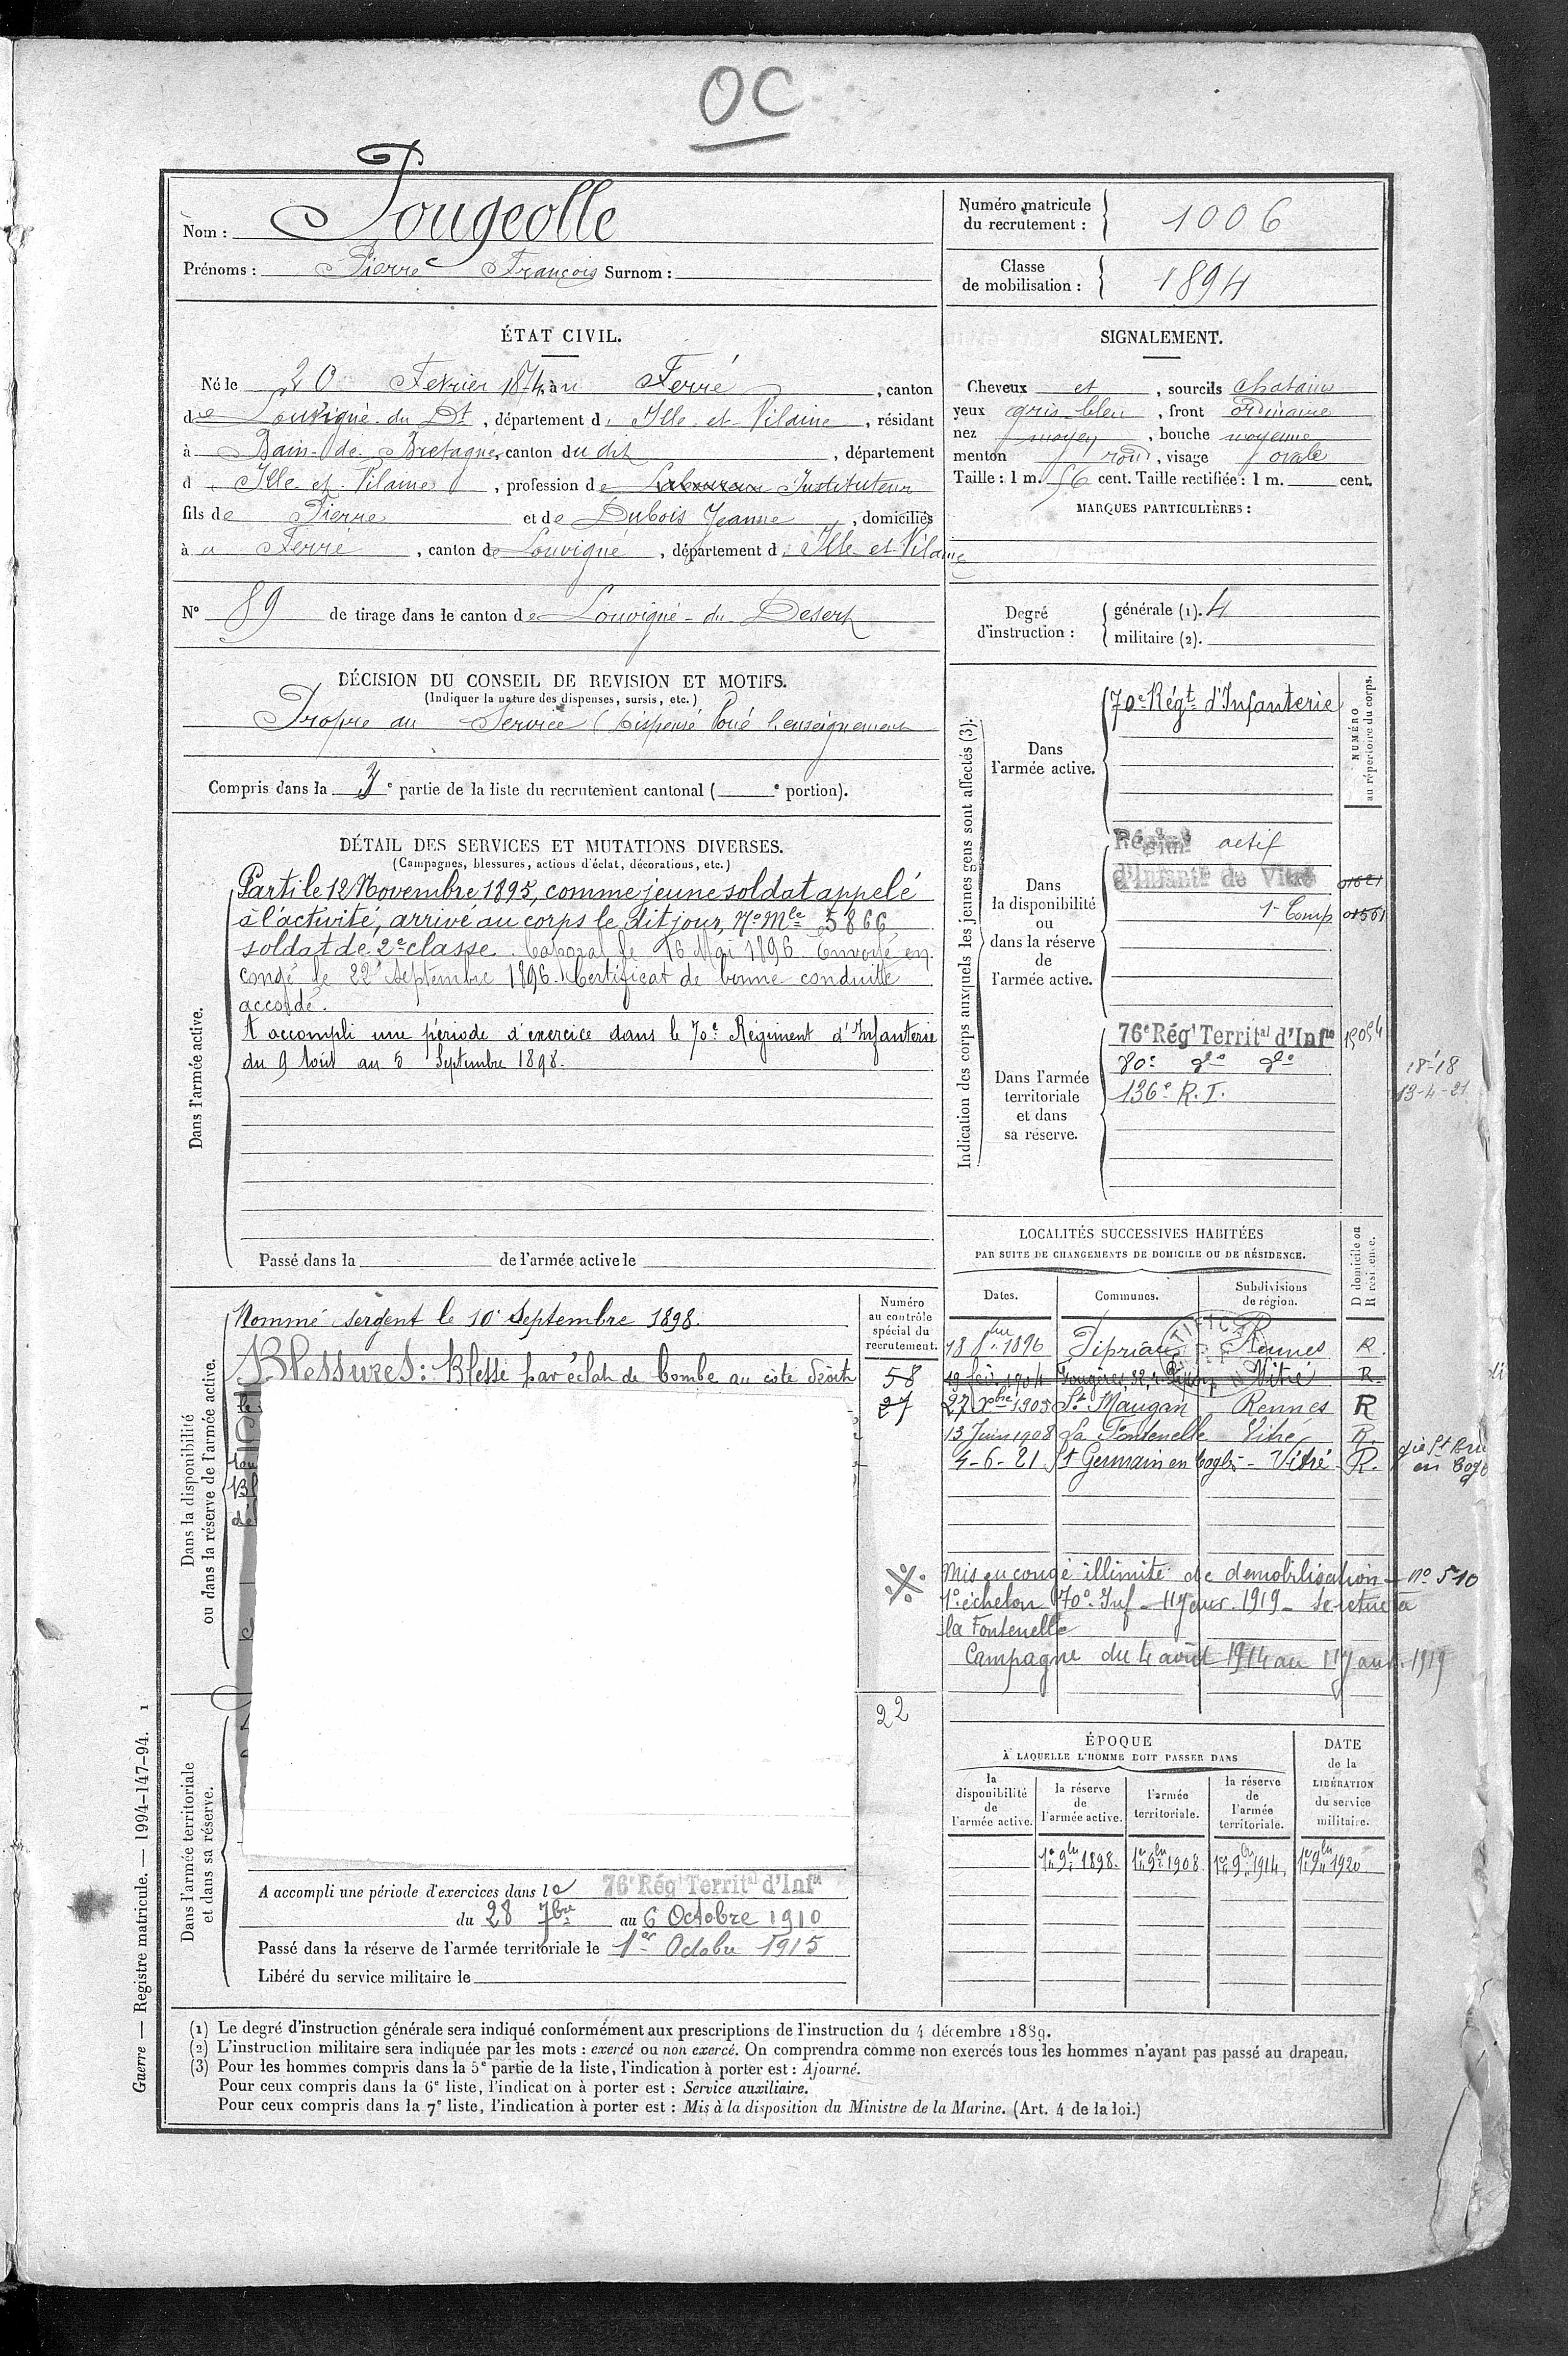 OC
Nom : Fougeolle
Prénoms : Pierre François Surnom :
Numéro matricule du recrutement : 1006
Classe de mobilisation : 1894
ÉTAT CIVIL.
Né le 20 Fevrier 1874, à Ferré, canton
de Louvigné du Dt, département d'Ille et Vilaine, résidant
à Bain-de-Bretagne, canton du dit, département
d Ille et Vilaine, profession de Instituteur
fils de Pierre et de Dubois Jeanne, domiciliés
à Ferré, canton de Louvigné, département d. Ille et Vilaine
N° 89 de tirage dans le canton de Louvigné-du-Desert
SIGNALEMENT.
Cheveux et, sourcils chatains
yeux gris-bleu, front ordinaire
nez moyen, bouche moyenne
menton rond, visage ovale
Taille : 1 m. 56 cent. Taille rectifiée : 1 m. cent.
MARQUES PARTICULIÈRES :
Degré d'instruction : générale (1). 4
militaire (2).
DÉCISION DU CONSEIL DE REVISION ET MOTIFS.
(Indiquer la nature des dispenses, sursis, etc.)
Propre au Service (Dispensé Voué l'enseignement
Compris dans la 3e partie de la liste du recrutement cantonal ( e portion).
DÉTAIL DES SERVICES ET MUTATIONS DIVERSES.
(Campagnes, blessures, actions d'éclat, décorations, etc.)
Dans l'armée active.
Parti le 12 Novembre 1895, comme jeune soldat appelé
à l'activité, arrivé au corps le dit jour, No Mle 5866,
soldat de 2e classe. Caporal le 16 Mai 1896. Envoyé en
congé le 22 Septembre 1896. Certificat de bonne conduite
accordé.
A accompli une période d'exercice dans le 70e Régiment d'Infanterie
du 9 Août au 5 Septembre 1898.
Passé dans la de l'armée active le
Indication des corps auxquels les jeunes gens sont affectés (3).
NUMÉRO au répertoire du corps.
Dans l'armée active.
70e Régt d'Infanterie
Dans la disponibilité ou dans la réserve de l'armée active.
Régimt actif
d'Infantie de Vitré 01621
1e Comp 01561
Dans l'armée territoriale et dans sa réserve.
76e Régt Territal d'Infie 15054
80e do do
136e R.I.
18-18
13-4-21
LOCALITÉS SUCCESSIVES HABITÉES
PAR SUITE DE CHANGEMENTS DE DOMICILE OU DE RÉSIDENCE.
Dates. Communes. Subdivisions de région. D domicile ou R résidence.
18 8bre 1896 Tipriac Rennes R.
19 fév. 1904 Fougères, 22, r Vitré R.
27 Xbre 1905 St Maugan Rennes R
13 Juin 1908 La Fontenelle Vitré R.
4-6-21 St Germain en Coglès - Vitré R.
Mis en congé illimité de démobilisation - no 510
1e échelon 70e Inf - 11 Janv. 1919 - Se retire à
la Fontenelle
Campagne du 4 août 1914 au 11 Janv. 1919
Dans la disponibilité ou dans la réserve de l'armée active.
Nommé sergent le 10 Septembre 1898.
Blessures : Blessé par éclat de bombe au côté droit
Numéro au contrôle spécial du recrutement.
58
27
22
Dans l'armée territoriale et dans sa réserve.
A accompli une période d'exercices dans le 76e Régt Territal d'Infie
du 28 7bre au 6 Octobre 1910
Passé dans la réserve de l'armée territoriale le 1er Octobre 1915
Libéré du service militaire le
ÉPOQUE
À LAQUELLE L'HOMME DOIT PASSER DANS
la disponibilité de l'armée active.
la réserve de l'armée active.
l'armée territoriale.
la réserve de l'armée territoriale.
DATE de la LIBÉRATION du service militaire.
1er 9bre 1898. 1er 9bre 1908. 1er 9bre 1914. 1er 9bre 1920
(1) Le degré d'instruction générale sera indiqué conformément aux prescriptions de l'instruction du 4 décembre 1889.
(2) L'instruction militaire sera indiquée par les mots : exercé ou non exercé. On comprendra comme non exercés tous les hommes n'ayant pas passé au drapeau.
(3) Pour les hommes compris dans la 5e partie de la liste, l'indication à porter est : Ajourné.
Pour ceux compris dans la 6e liste, l'indication à porter est : Service auxiliaire.
Pour ceux compris dans la 7e liste, l'indication à porter est : Mis à la disposition du Ministre de la Marine. (Art. 4 de la loi.)
Guerre — Registre matricule. — 1994-147-94. 1